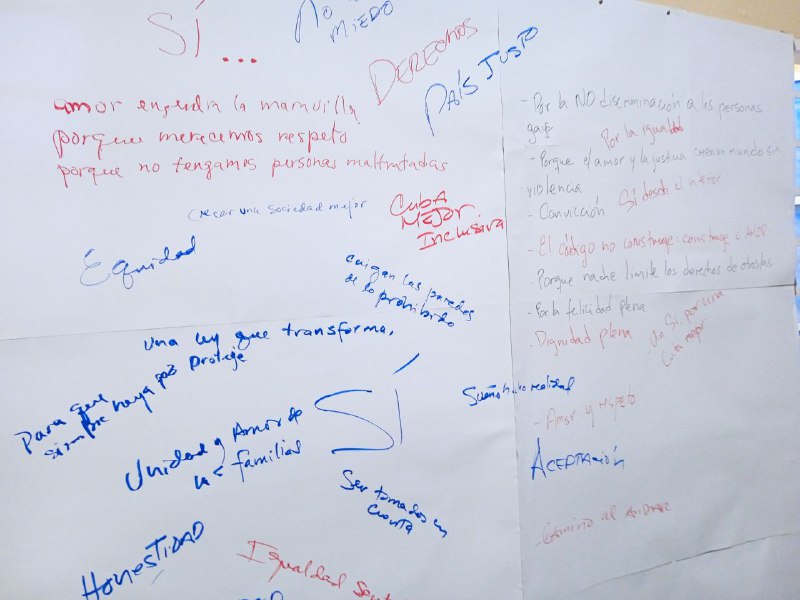 SÍ...
NO
MIEDO
DERECHOS
PAÍS JUSTO
amor engendra la maravilla
porque merecemos respeto
porque no tengamos personas maltratadas
Crear una sociedad mejor
CUBA
MEJOR
Inclusiva
Equidad
caigan las paredes
de lo prohibido
una ley que transforma,
Para que
siempre haya paz
proteja
Unidad y Amor de
las familias
SÍ
Sueño hecho realidad
Ser tomados en
cuenta
HonesTIDAD
Igualdad
- Por la NO discriminación a las personas
gays
Por la igualdad
- Porque el amor y la justicia creen un mundo sin
violencia
- Convicción
Sí desde el interior
- El código no construye: construye el
- Porque nadie limite los derechos de
felicidad plena
- Dignidad plena
Un Sí, por una
Cuba mejor
- Amor y respeto
ACEPTAción
- Camino al ANDAR